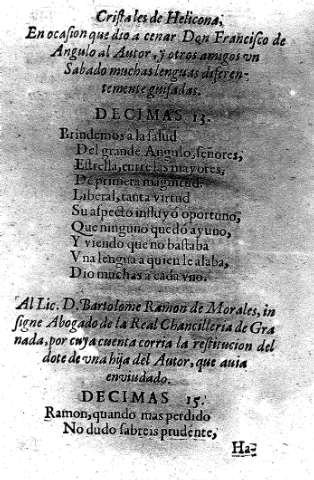 Cristales de Helicona,
En ocasion que dio a cenar Don Francisco de
Angulo al Autor, y otros amigos vn
Sabado muchas lenguas diferen-
temente guisadas.
DECIMAS 13.
Brindemos a la salud
Del grande Angulo, señores,
Estrella, entre las mayores,
De primera magnitud.
Liberal, tanta virtud
Su aspecto influyó oportuno,
Que ninguno quedó ayuno,
Y viendo que no bastaba
Vna lengua a quien le alaba,
Dio muchas a cada vno.
Al Lic. D. Bartolome Ramon de Morales, in
signe Abogado de la Real Chancilleria de Gra
nada, por cuya cuenta corria la restitucion del
dote de vna hija del Autor, que auia
enviudado.
DECIMAS 15.
Ramon, quando mas perdido
No dudo sabreis prudente,
Ha-